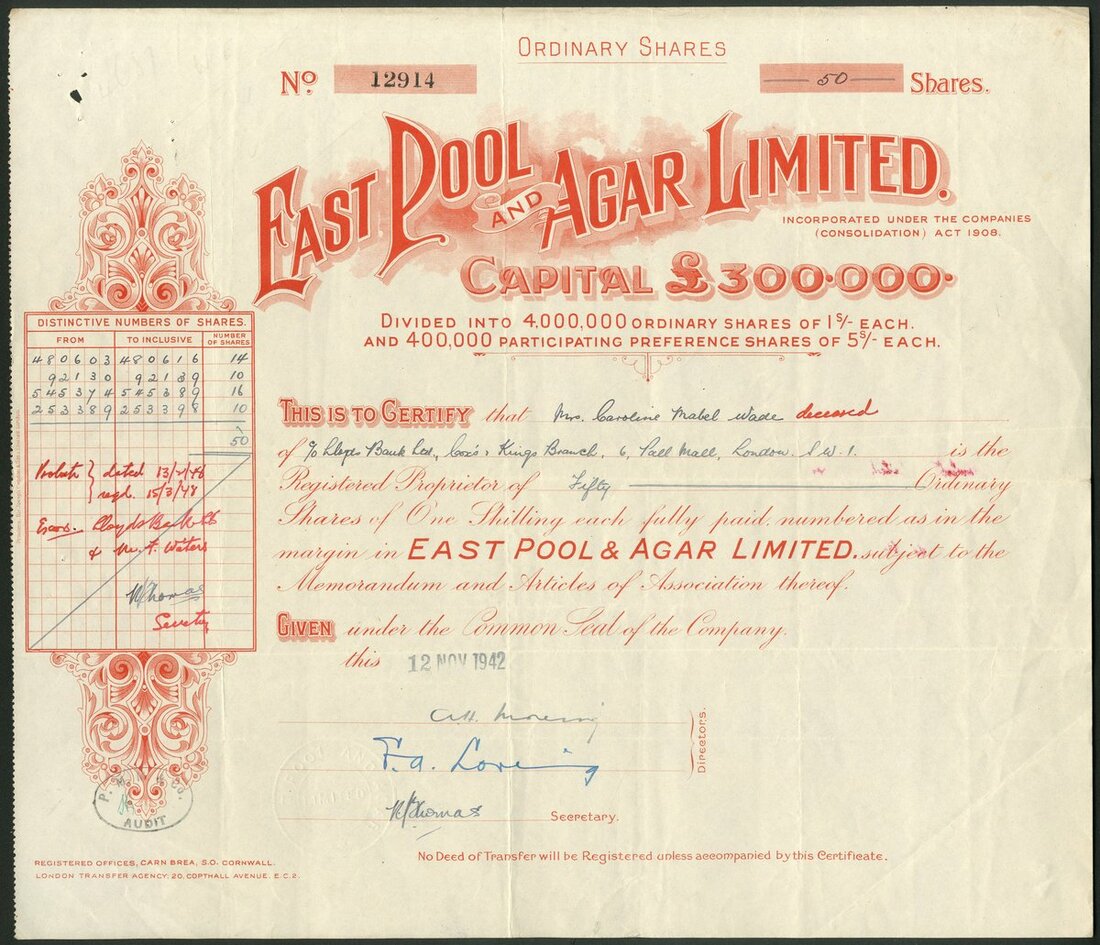 ORDINARY SHARES
No 12914
50 Shares.
EAST POOL AND AGAR LIMITED.
INCORPORATED UNDER THE COMPANIES
(CONSOLIDATION) ACT 1908.
CAPITAL £300.000.
DIVIDED INTO 4,000,000 ORDINARY SHARES OF 1S/- EACH.
AND 400,000 PARTICIPATING PREFERENCE SHARES OF 5S/- EACH.
DISTINCTIVE NUMBERS OF SHARES.
FROM TO INCLUSIVE NUMBER OF SHARES
480603 480616 14
92130 92139 10
545374 545389 16
253389 253398 10
50
Probate } dated 13/2/48
regd. 15/3/48
Exors. Lloyds Bank Ltd
& F. Waters
W Thomas
Secretary
THIS IS TO CERTIFY that Mrs. Caroline Mabel Wade deceased
of c/o Lloyds Bank Ltd, Cox's & Kings Branch, 6, Pall Mall, London. S.W.1. is the
Registered Proprietor of Fifty Ordinary
Shares of One Shilling each fully paid, numbered as in the
margin in EAST POOL & AGAR LIMITED. subject to the
Memorandum and Articles of Association thereof.
GIVEN under the Common Seal of the Company.
this 12 NOV 1942
F.A. Loring
W Thomas Secretary.
Directors.
AUDIT
No Deed of Transfer will be Registered unless accompanied by this Certificate.
REGISTERED OFFICES, CARN BREA, S.O. CORNWALL.
LONDON TRANSFER AGENCY: 20, COPTHALL AVENUE, E.C.2.